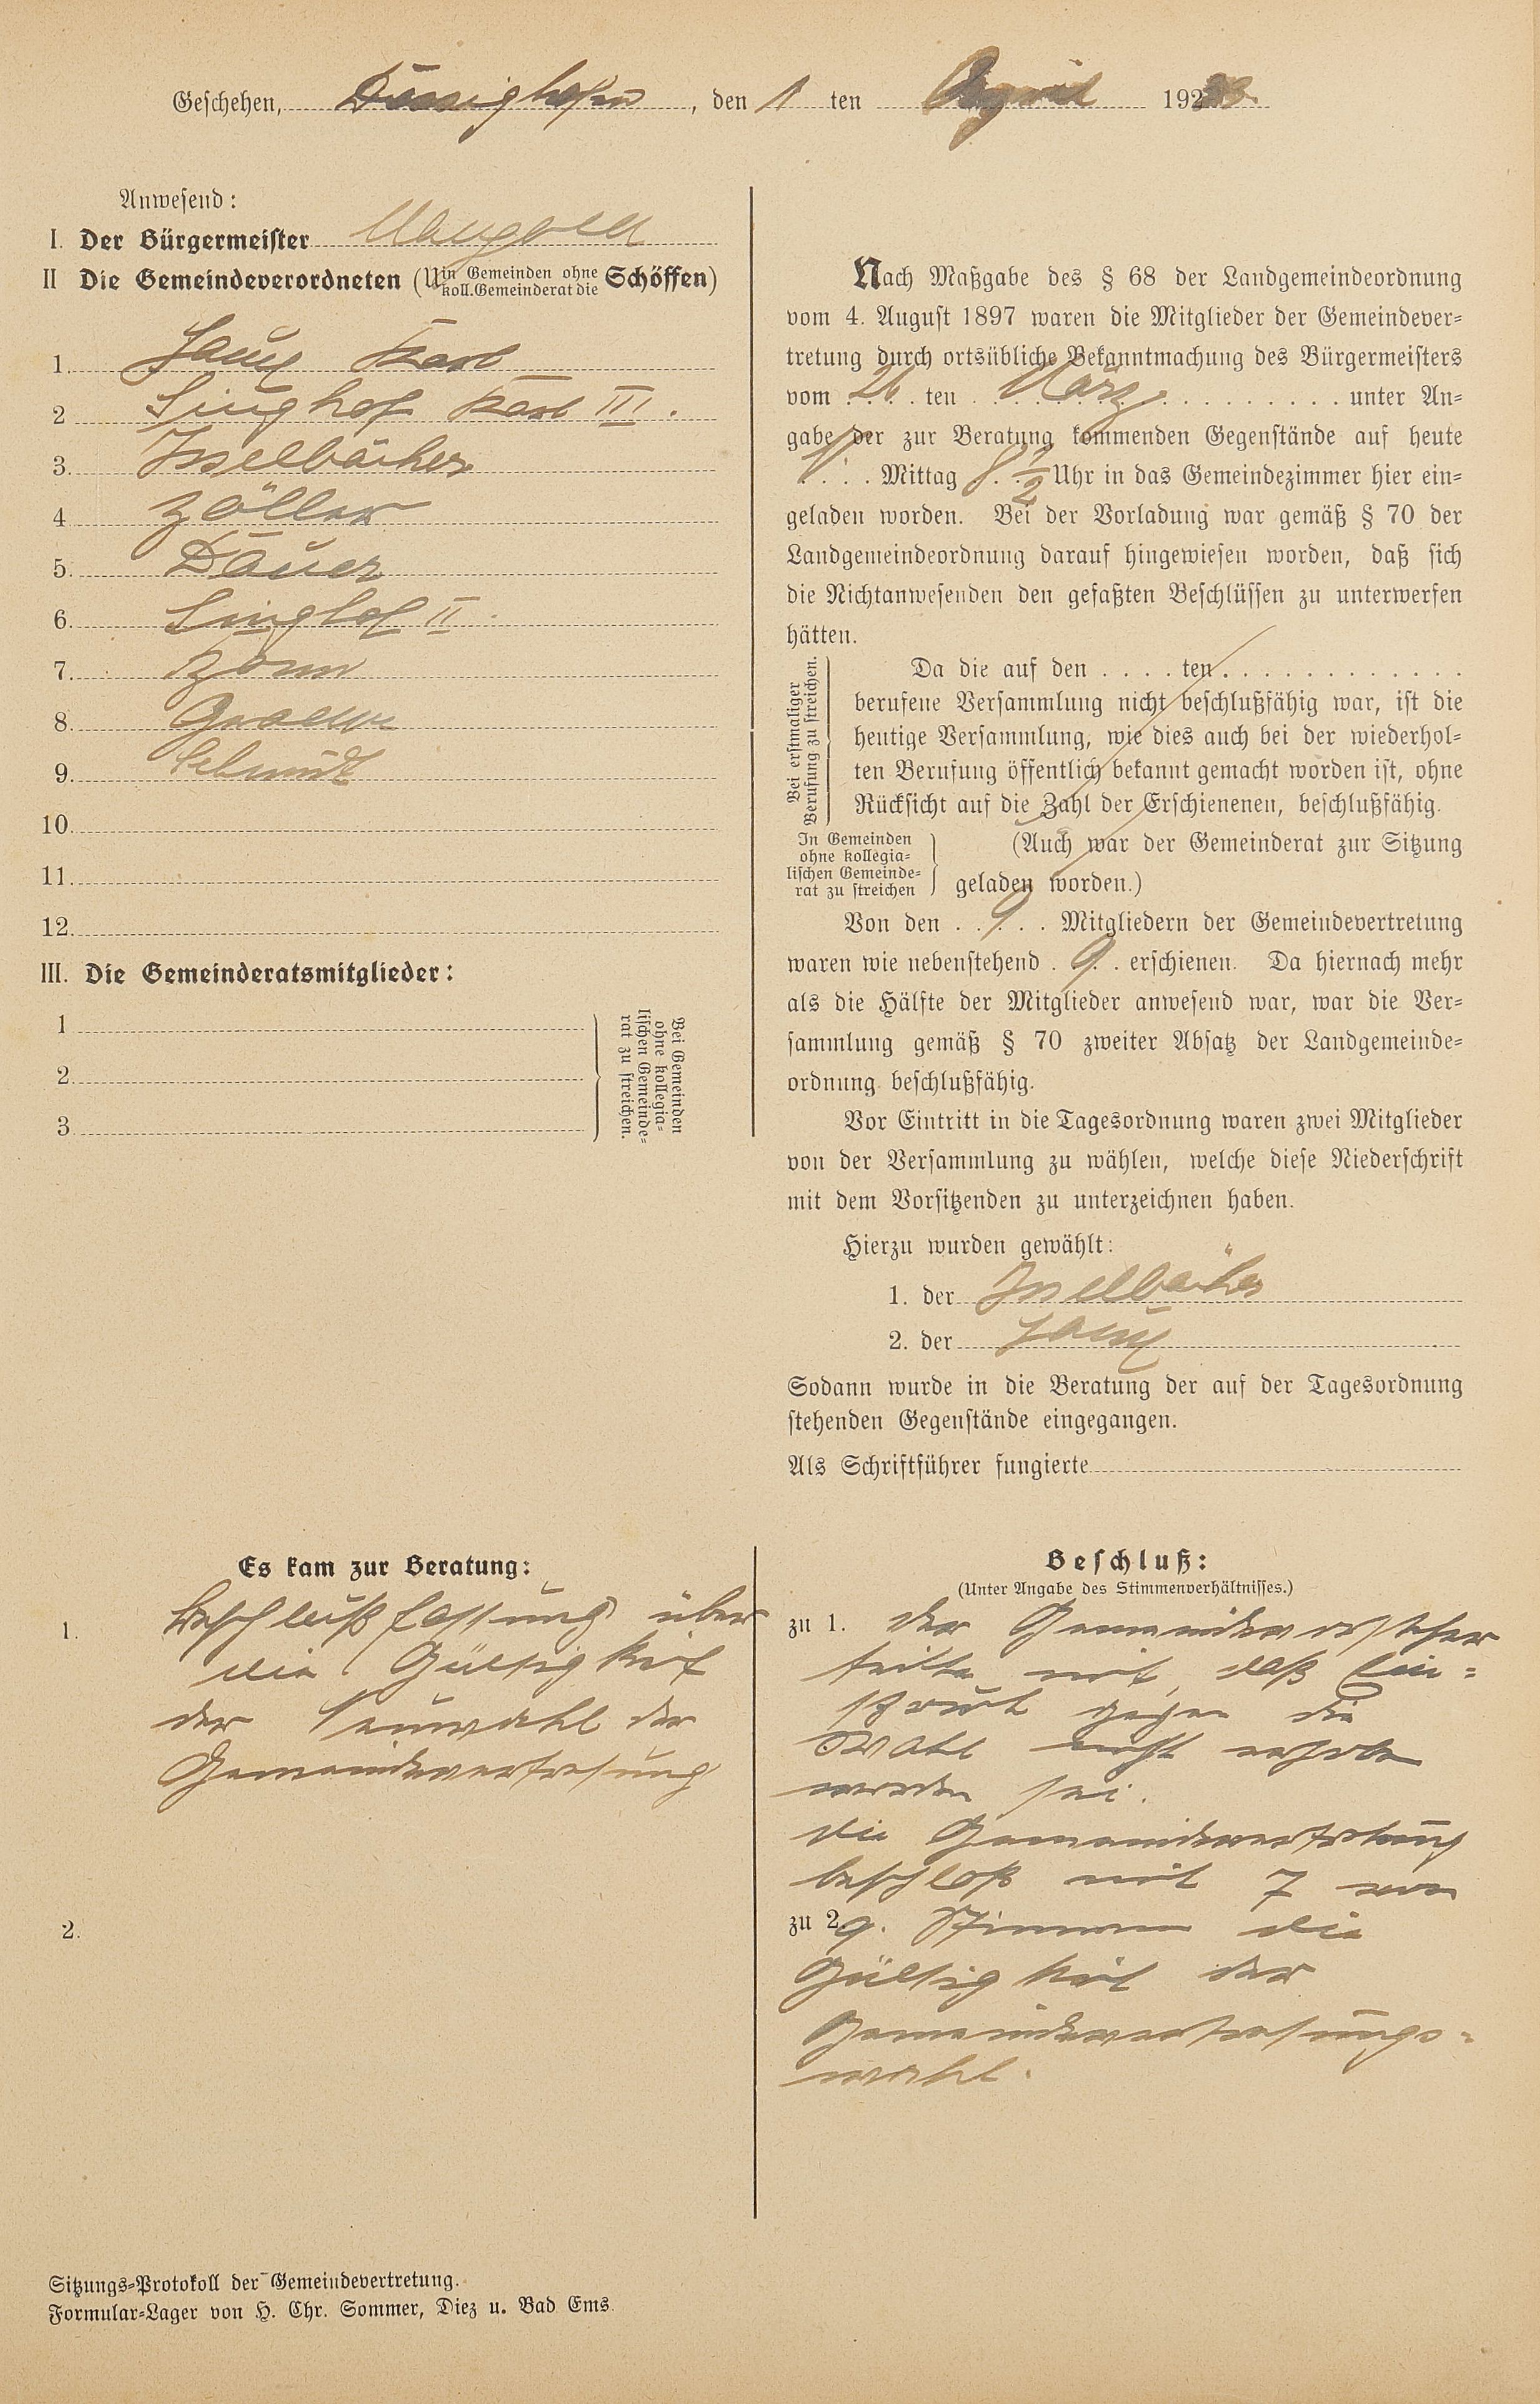 Geschehen, Dessighofen, den 1 ten April 192
Anwesend:
I. Der Bürgermeister Mangold
II Die Gemeindeverordneten (U in Gemeinden ohne koll. Gemeinderat die Schöffen)
1. Karl
2 Singhof Karl III.
3. Isselbächer
4 Zöller
5. Dauer
6. Singhof II
7. Korn
8.
9. Schmidt
10.
11.
12.
III. Die Gemeinderatsmitglieder:
1
2.
3.
Bei Gemeinden
ohne kollegia=
lischen Gemeinde=
rat zu streichen.
Nach Maßgabe des § 68 der Landgemeindeordnung
vom 4. August 1897 waren die Mitglieder der Gemeindever=
tretung durch ortsübliche Bekanntmachung des Bürgermeisters
vom 26 ten März unter An=
gabe der zur Beratung kommenden Gegenstände auf heute
Mittag 8 1/2 Uhr in das Gemeindezimmer hier ein=
geladen worden. Bei der Vorladung war gemäß § 70 der
Landgemeindeordnung darauf hingewiesen worden, daß sich
die Nichtanwesenden den gefaßten Beschlüssen zu unterwerfen
hätten.
Bei erstmaliger
Berufung zu streichen.
Da die auf den . . . . ten . . . . . . . . . . . .
berufene Versammlung nicht beschlußfähig war, ist die
heutige Versammlung, wie dies auch bei der wiederhol=
ten Berufung öffentlich bekannt gemacht worden ist, ohne
Rücksicht auf die Zahl der Erschienenen, beschlußfähig.
In Gemeinden
ohne kollegia=
lischen Gemeinde=
rat zu streichen
(Auch war der Gemeinderat zur Sitzung
geladen worden.)
Von den 9 Mitgliedern der Gemeindevertretung
waren wie nebenstehend 9 erschienen. Da hiernach mehr
als die Hälfte der Mitglieder anwesend war, war die Ver=
sammlung gemäß § 70 zweiter Absatz der Landgemeinde=
ordnung beschlußfähig.
Vor Eintritt in die Tagesordnung waren zwei Mitglieder
von der Versammlung zu wählen, welche diese Niederschrift
mit dem Vorsitzenden zu unterzeichnen haben.
Hierzu wurden gewählt:
1. der Isselbächer
2. der
Sodann wurde in die Beratung der auf der Tagesordnung
stehenden Gegenstände eingegangen.
Als Schriftführer fungierte
Es kam zur Beratung:
1. Beschlußfassung über
die Gültigkeit
der Neuwahl der
Gemeindevertretung
2.
Beschluß:
(Unter Angabe des Stimmenverhältnisses.)
zu 1. Der Gemeindevorsteher
teilte mit, daß Ein=
spruch gegen die
Wahl nicht erhoben
worden sei.
Die Gemeindevertretung
beschloß mit 7 von
zu 2 9. Stimmen die
Gültigkeit der
Gemeindevertretungs=
wahl.
Sitzungs=Protokoll der Gemeindevertretung.
Formular=Lager von H. Chr. Sommer, Diez u. Bad Ems.